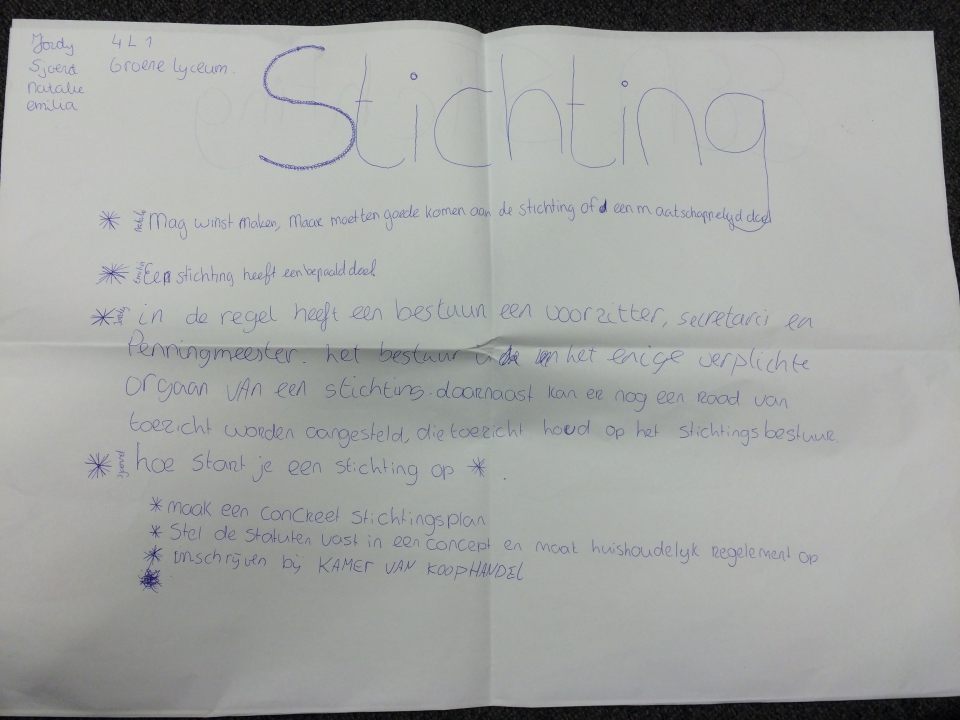 Jordy 4L1
Sjoerd Groene lyceum.
Natalie
emilia
Stichting
* Natalie Mag winst maken, maar moet ten goede komen aan de stichting of een maatschappelijd doel
* Emilia Een stichting heeft een bepaald doel
* Jordy in de regel heeft een bestuur een voorzitter, secretaris en
Penningmeester. het bestuur is het enige verplichte
orgaan VAn een stichting. daarnaast kan er nog een raad van
toezicht worden aangesteld, die toezicht houd op het stichtingsbestuur
* Sjoerd hoe start je een stichting op *.
* maak een concreet stichtingsplan
* Stel de statuten vast in een concept en maak huishoudelijk regelement op
* inschrijven bij KAMER VAN KOOPHANDEL
*